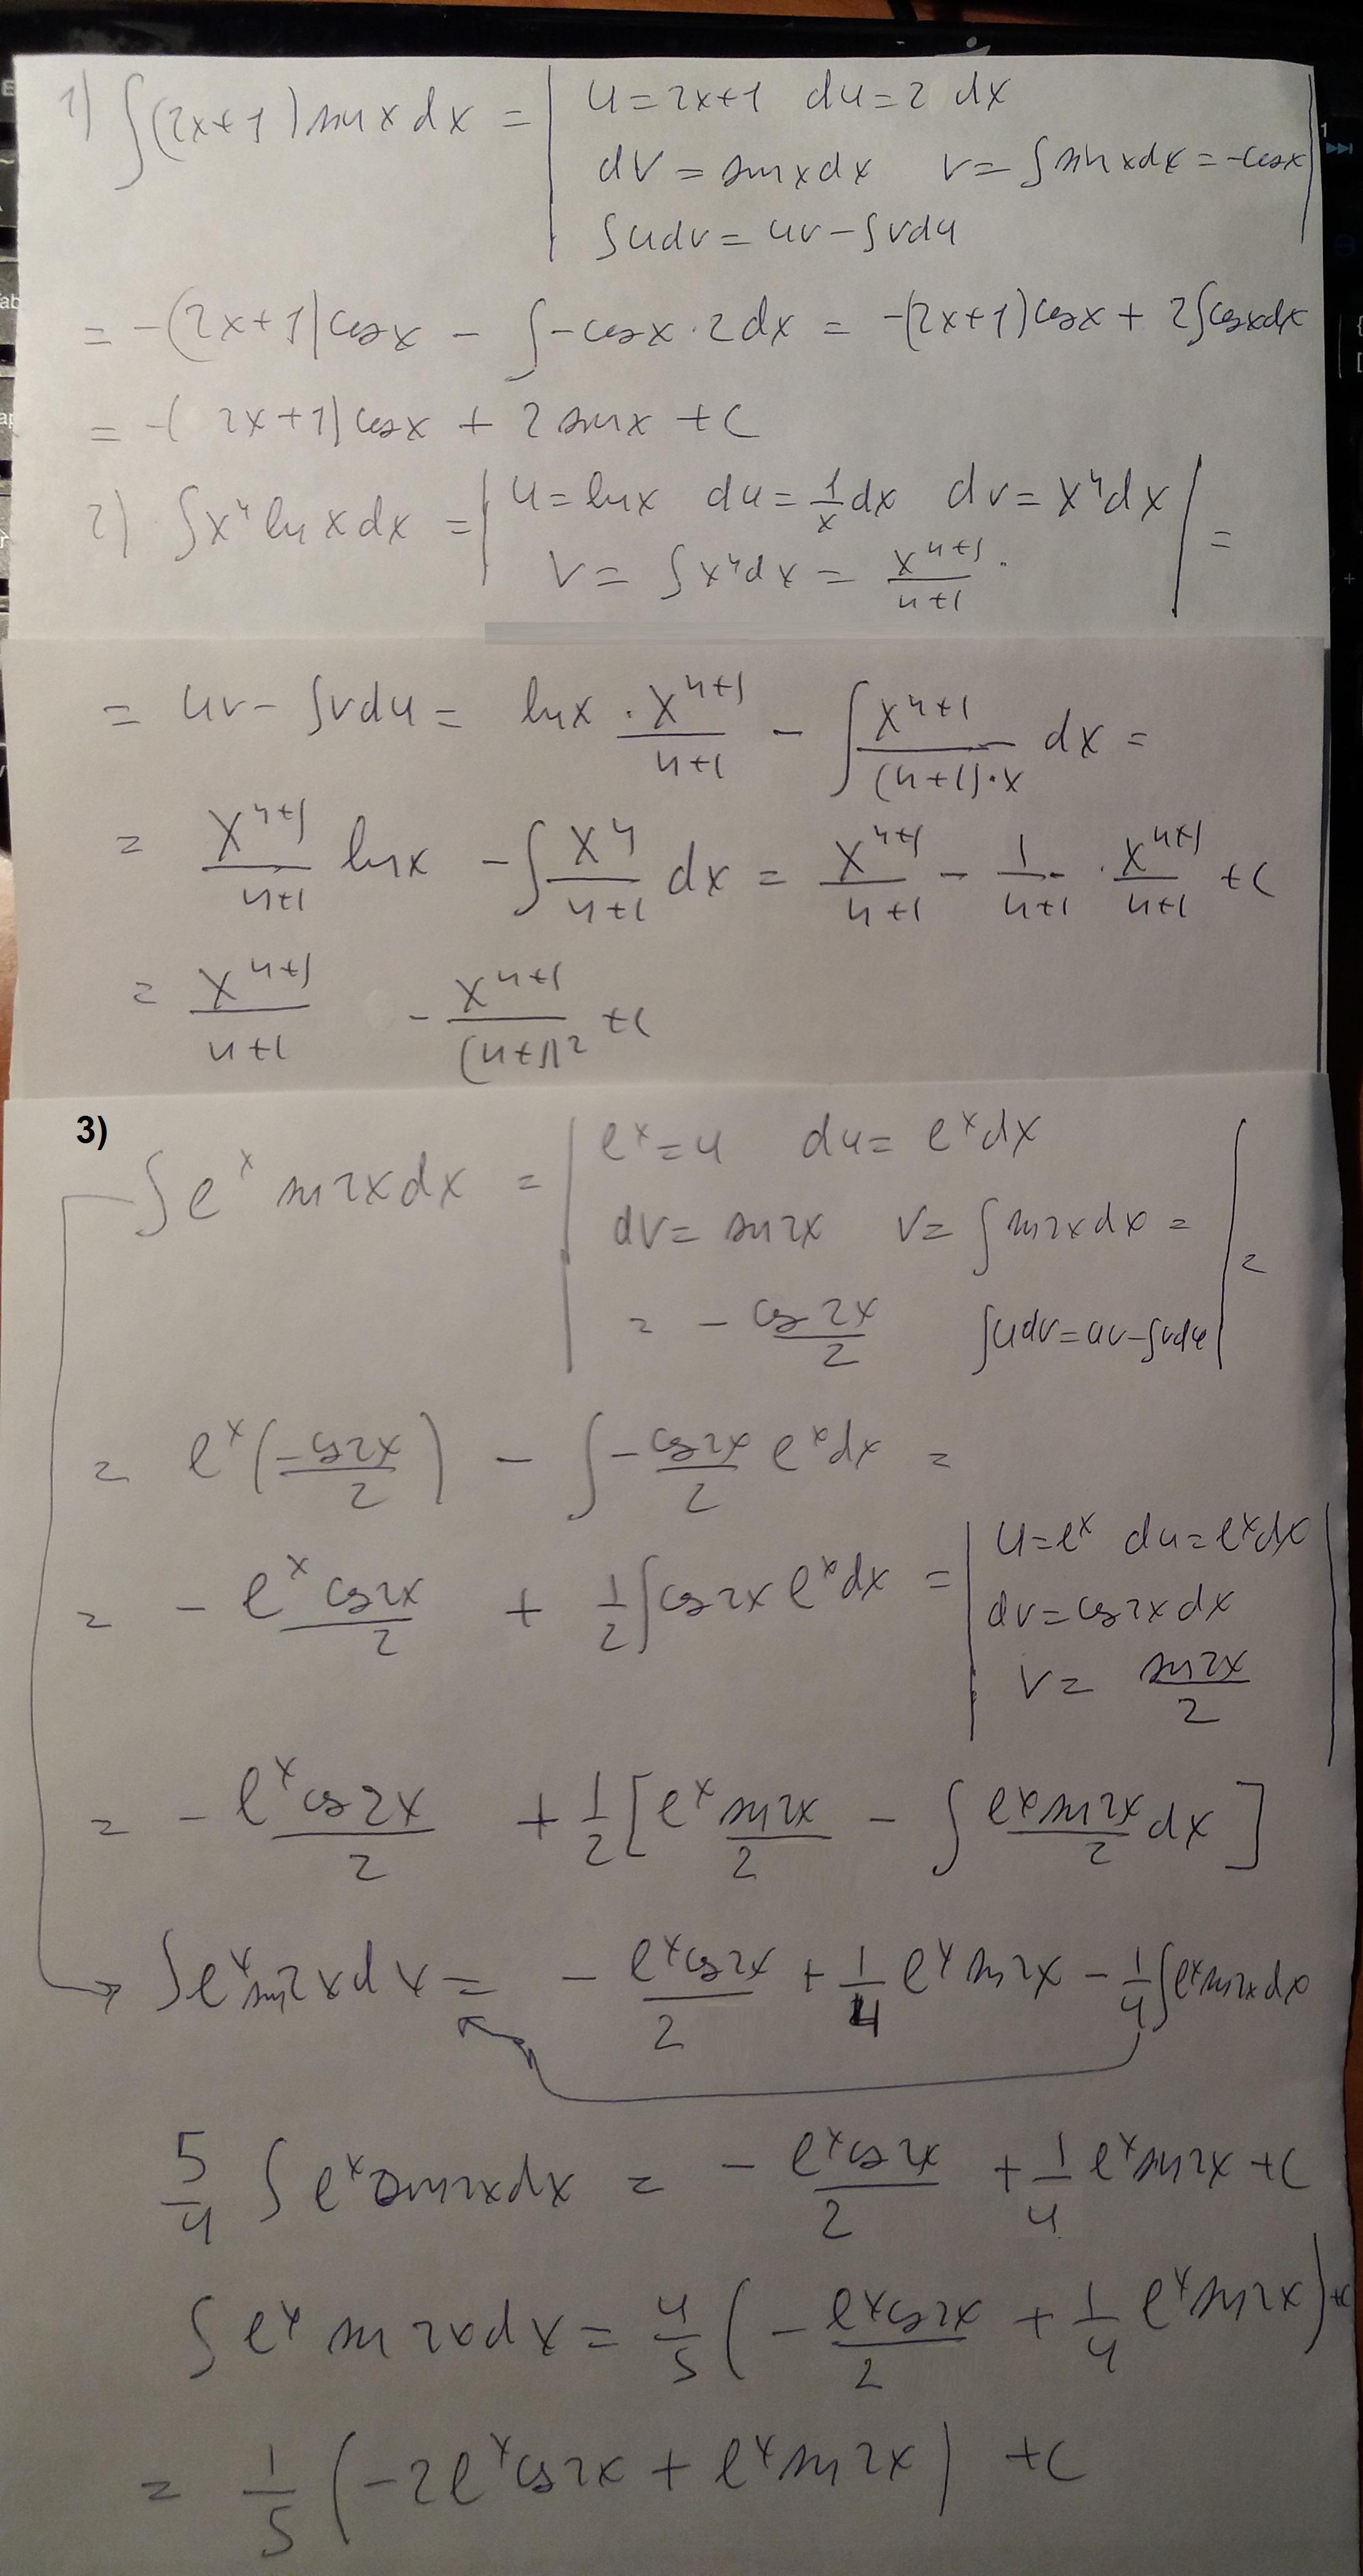 1) ∫(2x+1) sin x dx = | u = 2x+1 du = 2 dx
dv = sin x dx v = ∫ sin x dx = -cos x |
∫udv = uv - ∫vdu
= -(2x+1) cos x - ∫ -cos x · 2 dx = -(2x+1) cos x + 2∫cos x dx
= -(2x+1) cos x + 2 sin x + C
2) ∫x^n ln x dx = | u = ln x du = 1/x dx dv = x^n dx | =
v = ∫x^n dx = x^(n+1)/(n+1)
= uv - ∫vdu = ln x · x^(n+1)/(n+1) - ∫ x^(n+1)/((n+1)·x) dx =
= x^(n+1)/(n+1) ln x - ∫ x^n/(n+1) dx = x^(n+1)/(n+1) - 1/(n+1) · x^(n+1)/(n+1) + C
= x^(n+1)/(n+1) - x^(n+1)/(n+1)² + C
3)
∫e^x sin 2x dx = | e^x = u du = e^x dx
dv = sin 2x v = ∫ sin 2x dx = | =
= - cos 2x/2 ∫udv = uv - ∫vdu
= e^x (-cos 2x/2) - ∫ -cos 2x/2 e^x dx =
= - e^x cos 2x/2 + 1/2 ∫cos 2x e^x dx = | u = e^x du = e^x dx
dv = cos 2x dx
v = sin 2x/2 |
= - e^x cos 2x/2 + 1/2 [e^x sin 2x/2 - ∫ e^x sin 2x/2 dx]
∫e^x sin 2x dx = - e^x cos 2x/2 + 1/4 e^x sin 2x - 1/4 ∫e^x sin 2x dx
5/4 ∫ e^x sin 2x dx = - e^x cos 2x/2 + 1/4 e^x sin 2x + C
∫ e^x sin 2x dx = 4/5 (- e^x cos 2x/2 + 1/4 e^x sin 2x) + C
= 1/5 (-2e^x cos 2x + e^x sin 2x) + C